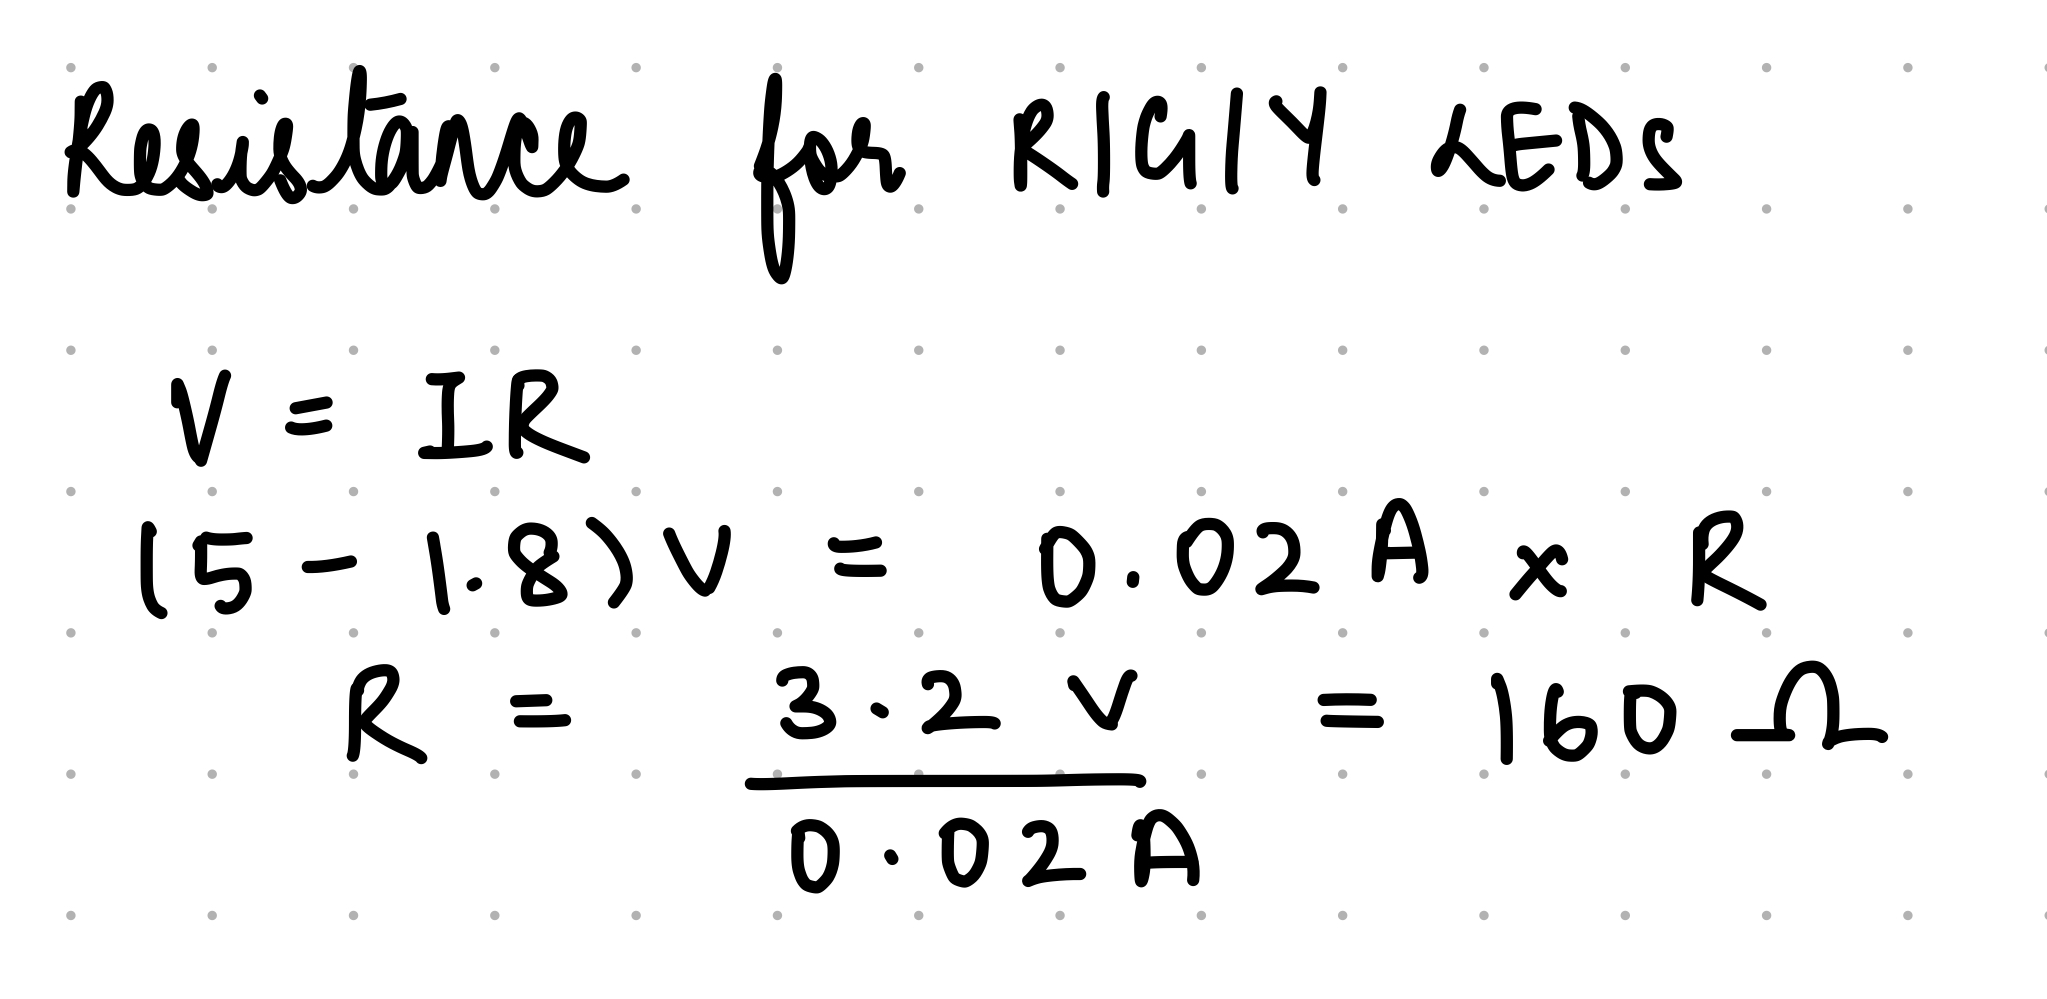 Resistance for R/G/Y LEDs
V = IR
(5 - 1.8) V = 0.02 A × R
R = 3.2 V / 0.02 A = 160 Ω